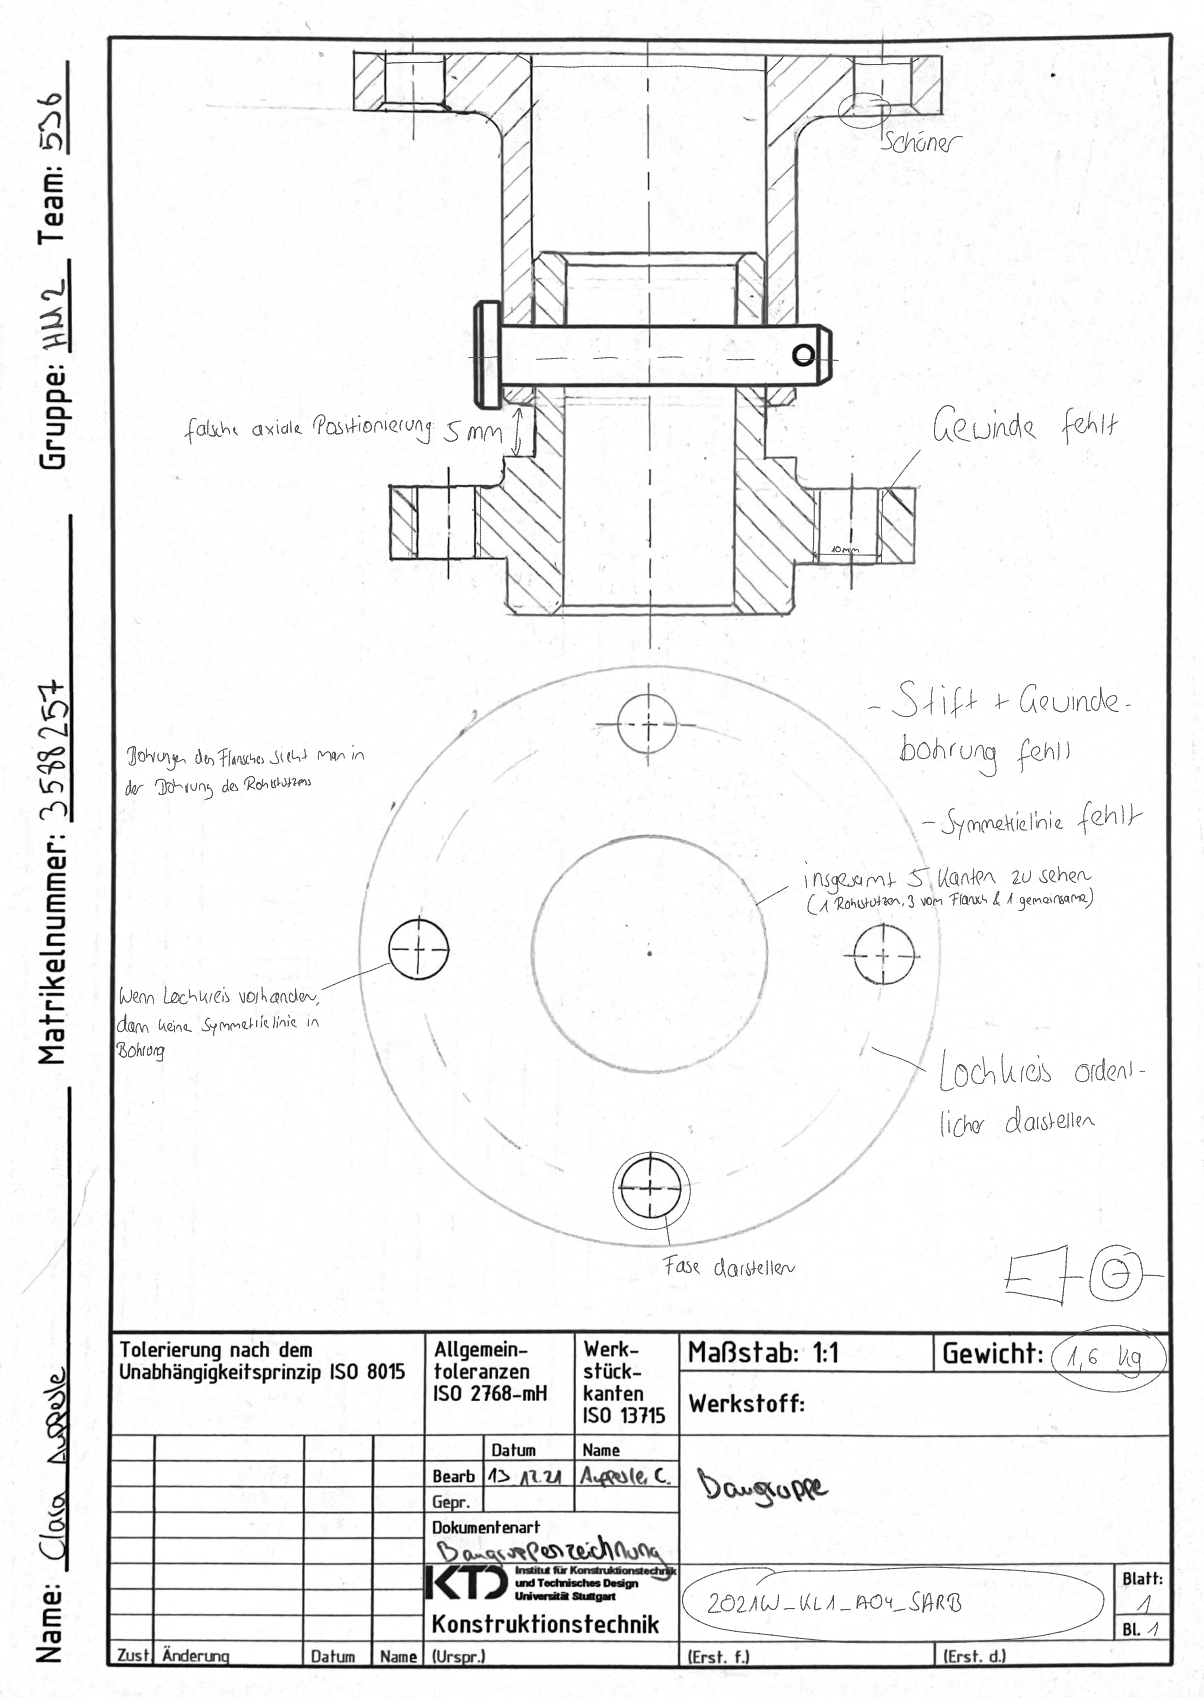 Name: Clara Aupperle Matrikelnummer: 3588257 Gruppe: HM2 Team: 536
Schöner
falsche axiale Positionierung 5 mm
Gewinde fehlt
10mm
- Stift + Gewinde-
bohrung fehlt
Bohrungen des Flansches sieht man in
der Bohrung des Rohrstutzens
- Symmetrielinie fehlt
insgesamt 5 Kanten zu sehen
(1 Rohrstutzen, 3 vom Flansch & 1 gemeinsame)
Wenn Lochkreis vorhanden,
dann keine Symmetrielinie in
Bohrung
Lochkreis ordent-
licher darstellen
Fase darstellen
Tolerierung nach dem
Unabhängigkeitsprinzip ISO 8015
Allgemein-
toleranzen
ISO 2768-mH
Werk-
stück-
kanten
ISO 13715
Maßstab: 1:1
Gewicht: 1,6 kg
Werkstoff:
Datum Name
Bearb 13.12.21 Aupperle, C.
Gepr.
Baugruppe
Dokumentenart
Baugruppenzeichnung
KTD Institut für Konstruktionstechnik
und Technisches Design
Universität Stuttgart
Konstruktionstechnik
2021W_KL1_A04_SARB
Blatt:
1
Bl. 1
Zust. Änderung Datum Name (Urspr.) (Erst. f.) (Erst. d.)